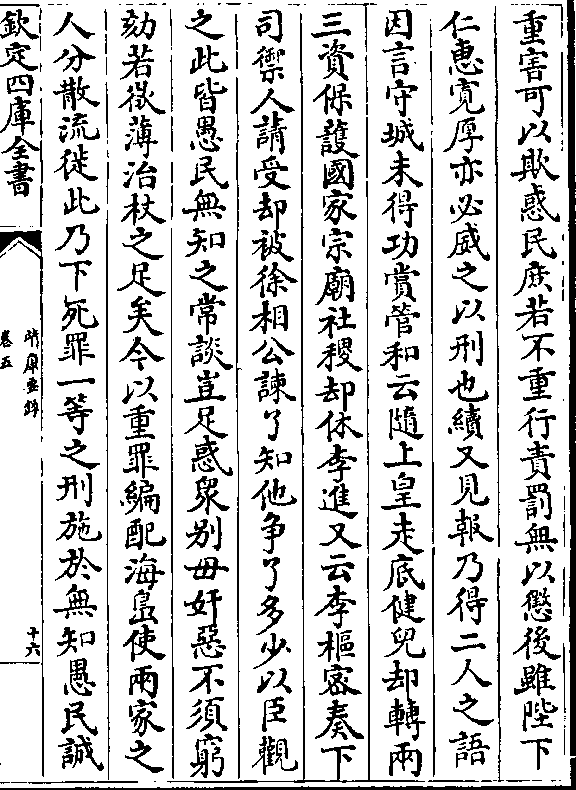 重害可以欺惑民庶若不重行責罰無以懲後雖陛下
仁惠寛厚亦必威之以刑也續又見報乃得二人之語
因言守城未得功賞管和云隨上皇走底健兒却轉兩
三資保護國家宗廟社稷却休李進又云李樞宻奏下
司禦人請受却被徐相公諫了知他争了多少以臣觀
之此皆愚民無知之常談豈足惑衆别毋奸惡不須窮
劾若从薄治杖之足矣今以重罪編配海島使兩家之
人分散流徙此乃下死罪一等之刑施於無知愚民誠
欽定四庫全書
靖康要錄
卷五
十六